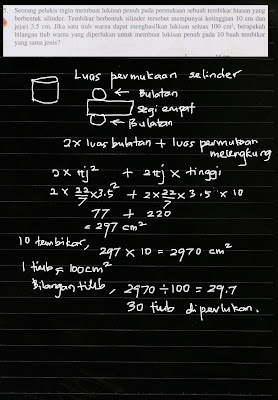 5. Seorang pelukis ingin membuat lukisan penuh pada permukaan sebuah tembikar hiasan yang
berbentuk silinder. Tembikar berbentuk silinder tersebut mempunyai ketinggian 10 cm dan
jejari 3.5 cm. Jika satu tiub warna dapat menghasilkan lukisan seluas 100 cm², berapakah
bilangan tiub warna yang diperlukan untuk membuat lukisan penuh pada 10 buah tembikar
yang sama jenis?
Luas permukaan selinder
Bulatan
segi empat
Bulatan
2x luas bulatan + luas permukaan
melengkung
2 x πj² + 2πj x tinggi
2 x 22/7 x 3.5² + 2x 22/7 x 3.5 x 10
77 + 220
= 297 cm²
10 tembikar, 297 x 10 = 2970 cm²
1 tiub = 100cm²
Bilangan tiub, 2970 ÷ 100 = 29.7
30 tiub diperlukan.